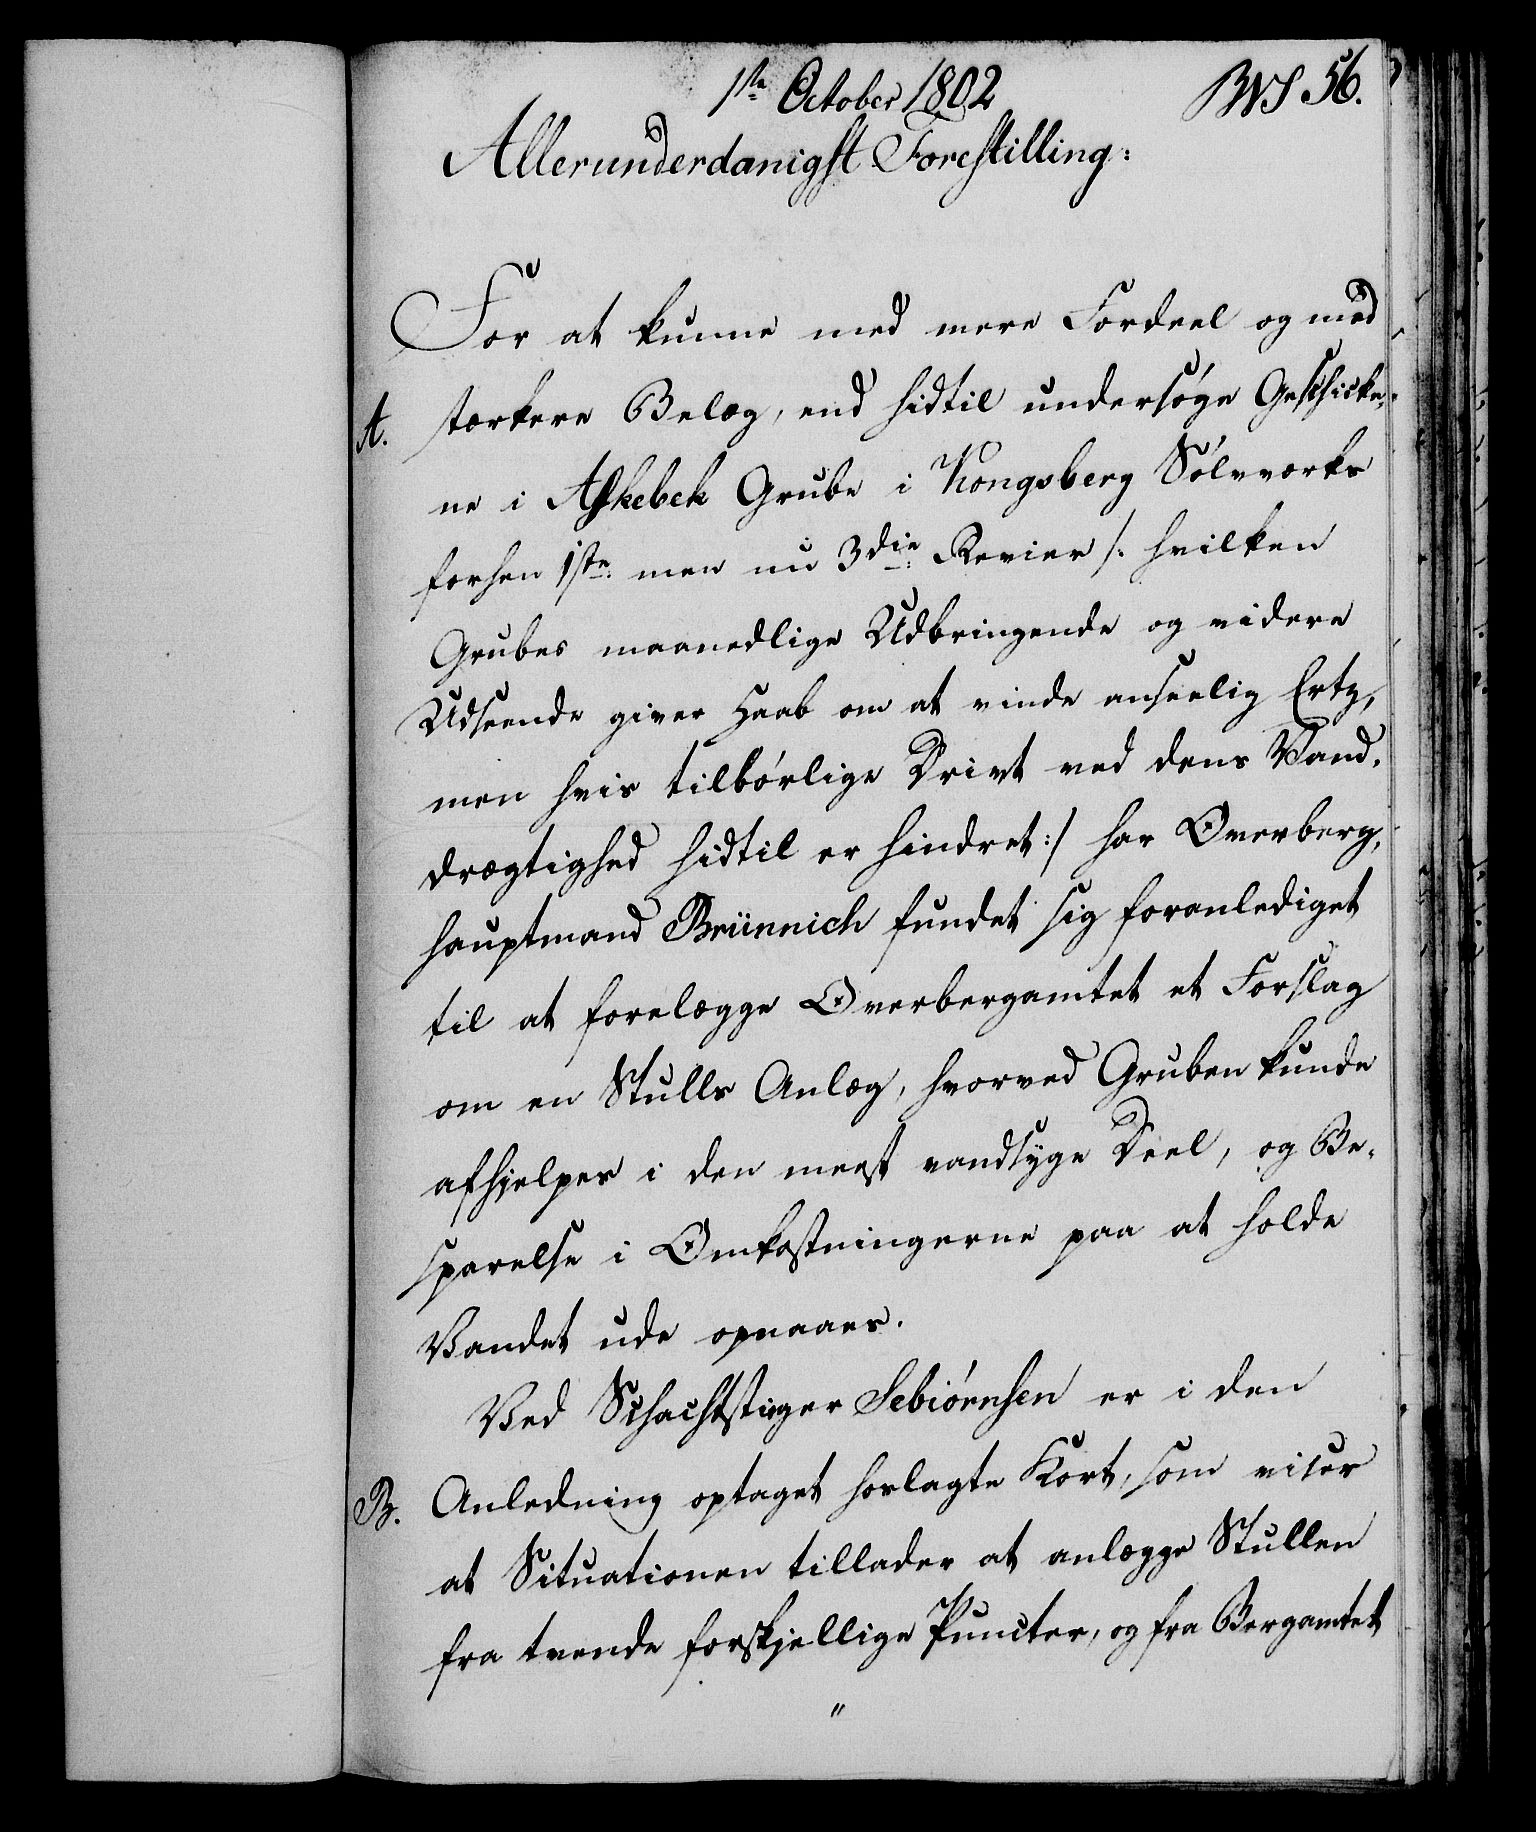 1ste October 1802
BVS 56.
Allerunderdanigst Forestilling:
For at kunne med mere Fordeel og med
A. stærkere Belæg, end hidtil undersøge Geschicke-
ne i Askebek Grube i Kongsberg Sølvværks
forhen 1ste men nu 3die Revier /: hvilken
Grubes maanedlige Udbringende og videre
Udseende giver Haab om at vinde anseelig Ertz,
men hvis tilbørlige Drivt ved dens Vand-
drægtighed hidtil er hindret :/ har Overberg-
hauptmand Brünnich fundet sig foranlediget
til at forelægge Overbergamtet et Forslag
om en Stolls Anlæg, hvorved Gruben kunde
afhjelpes i den meest vandsyge Deel, og Be-
sparelse i Omkostningerne paa at holde
Vandet ude opnaaes.
Ved Schachtstiger Sebiørnsen er i den
B. Anledning optaget hoslagte Kort, som viser
at Situationen tillader at anlægge Stullen
fra tvende forskjellige Puncter, og fra Bergamtet
"